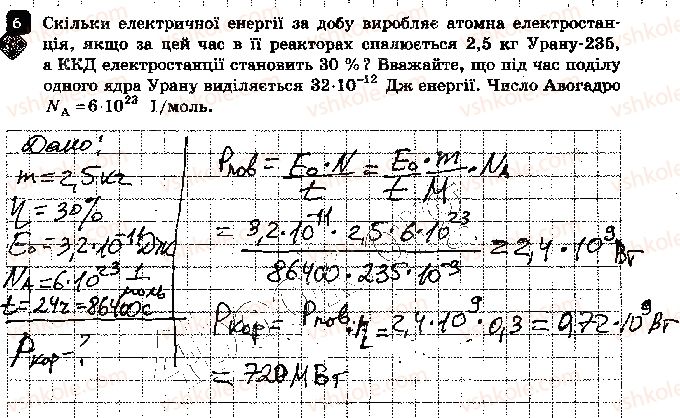 6 Скільки електричної енергії за добу виробляє атомна електростан-
ція, якщо за цей час в її реакторах спалюється 2,5 кг Урану-235,
а ККД електростанції становить 30 %? Вважайте, що під час поділу
одного ядра Урану виділяється 32·10⁻¹² Дж енергії. Число Авогадро
N_A = 6·10²³ 1/моль.
Дано:
m = 2,5 кг
η = 30%
E₀ = 3,2·10⁻¹¹ Дж
N_A = 6·10²³ 1/моль
t = 24г = 86400с
P_кор = ?
P_пов = E₀·N/t = E₀·m/t·M · N_A
= 3,2·10⁻¹¹ · 2,5·6·10²³ / 86400·235·10⁻³ = 2,4·10⁹ Вт
P_кор = P_пов·η = 2,4·10⁹·0,3 = 0,72·10⁹ Вт
= 720 МВт